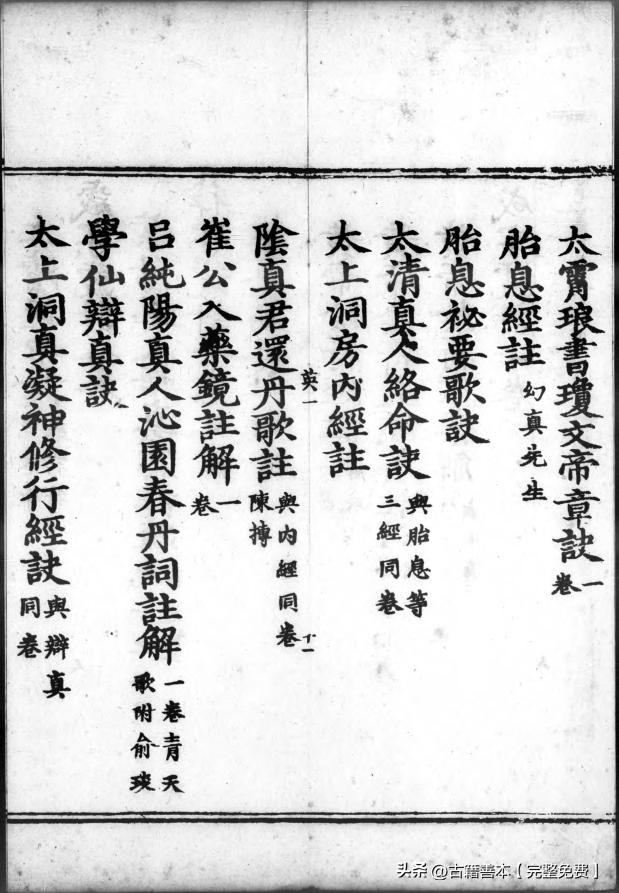 太霄琅書瓊文帝章訣 一卷
胎息經註 幻真先生
胎息祕要歌訣
太清真人絡命訣 與胎息等三經同卷
太上洞房內經註
陰真君還丹歌註 與內經同卷 陳摶
英一
十一
崔公入藥鏡註解 一卷
呂純陽真人沁園春丹詞註解 一卷青天歌附俞琰
學仙辯真訣
太上洞真凝神修行經訣 與辯真同卷
头条 @古籍善本【完整免费】